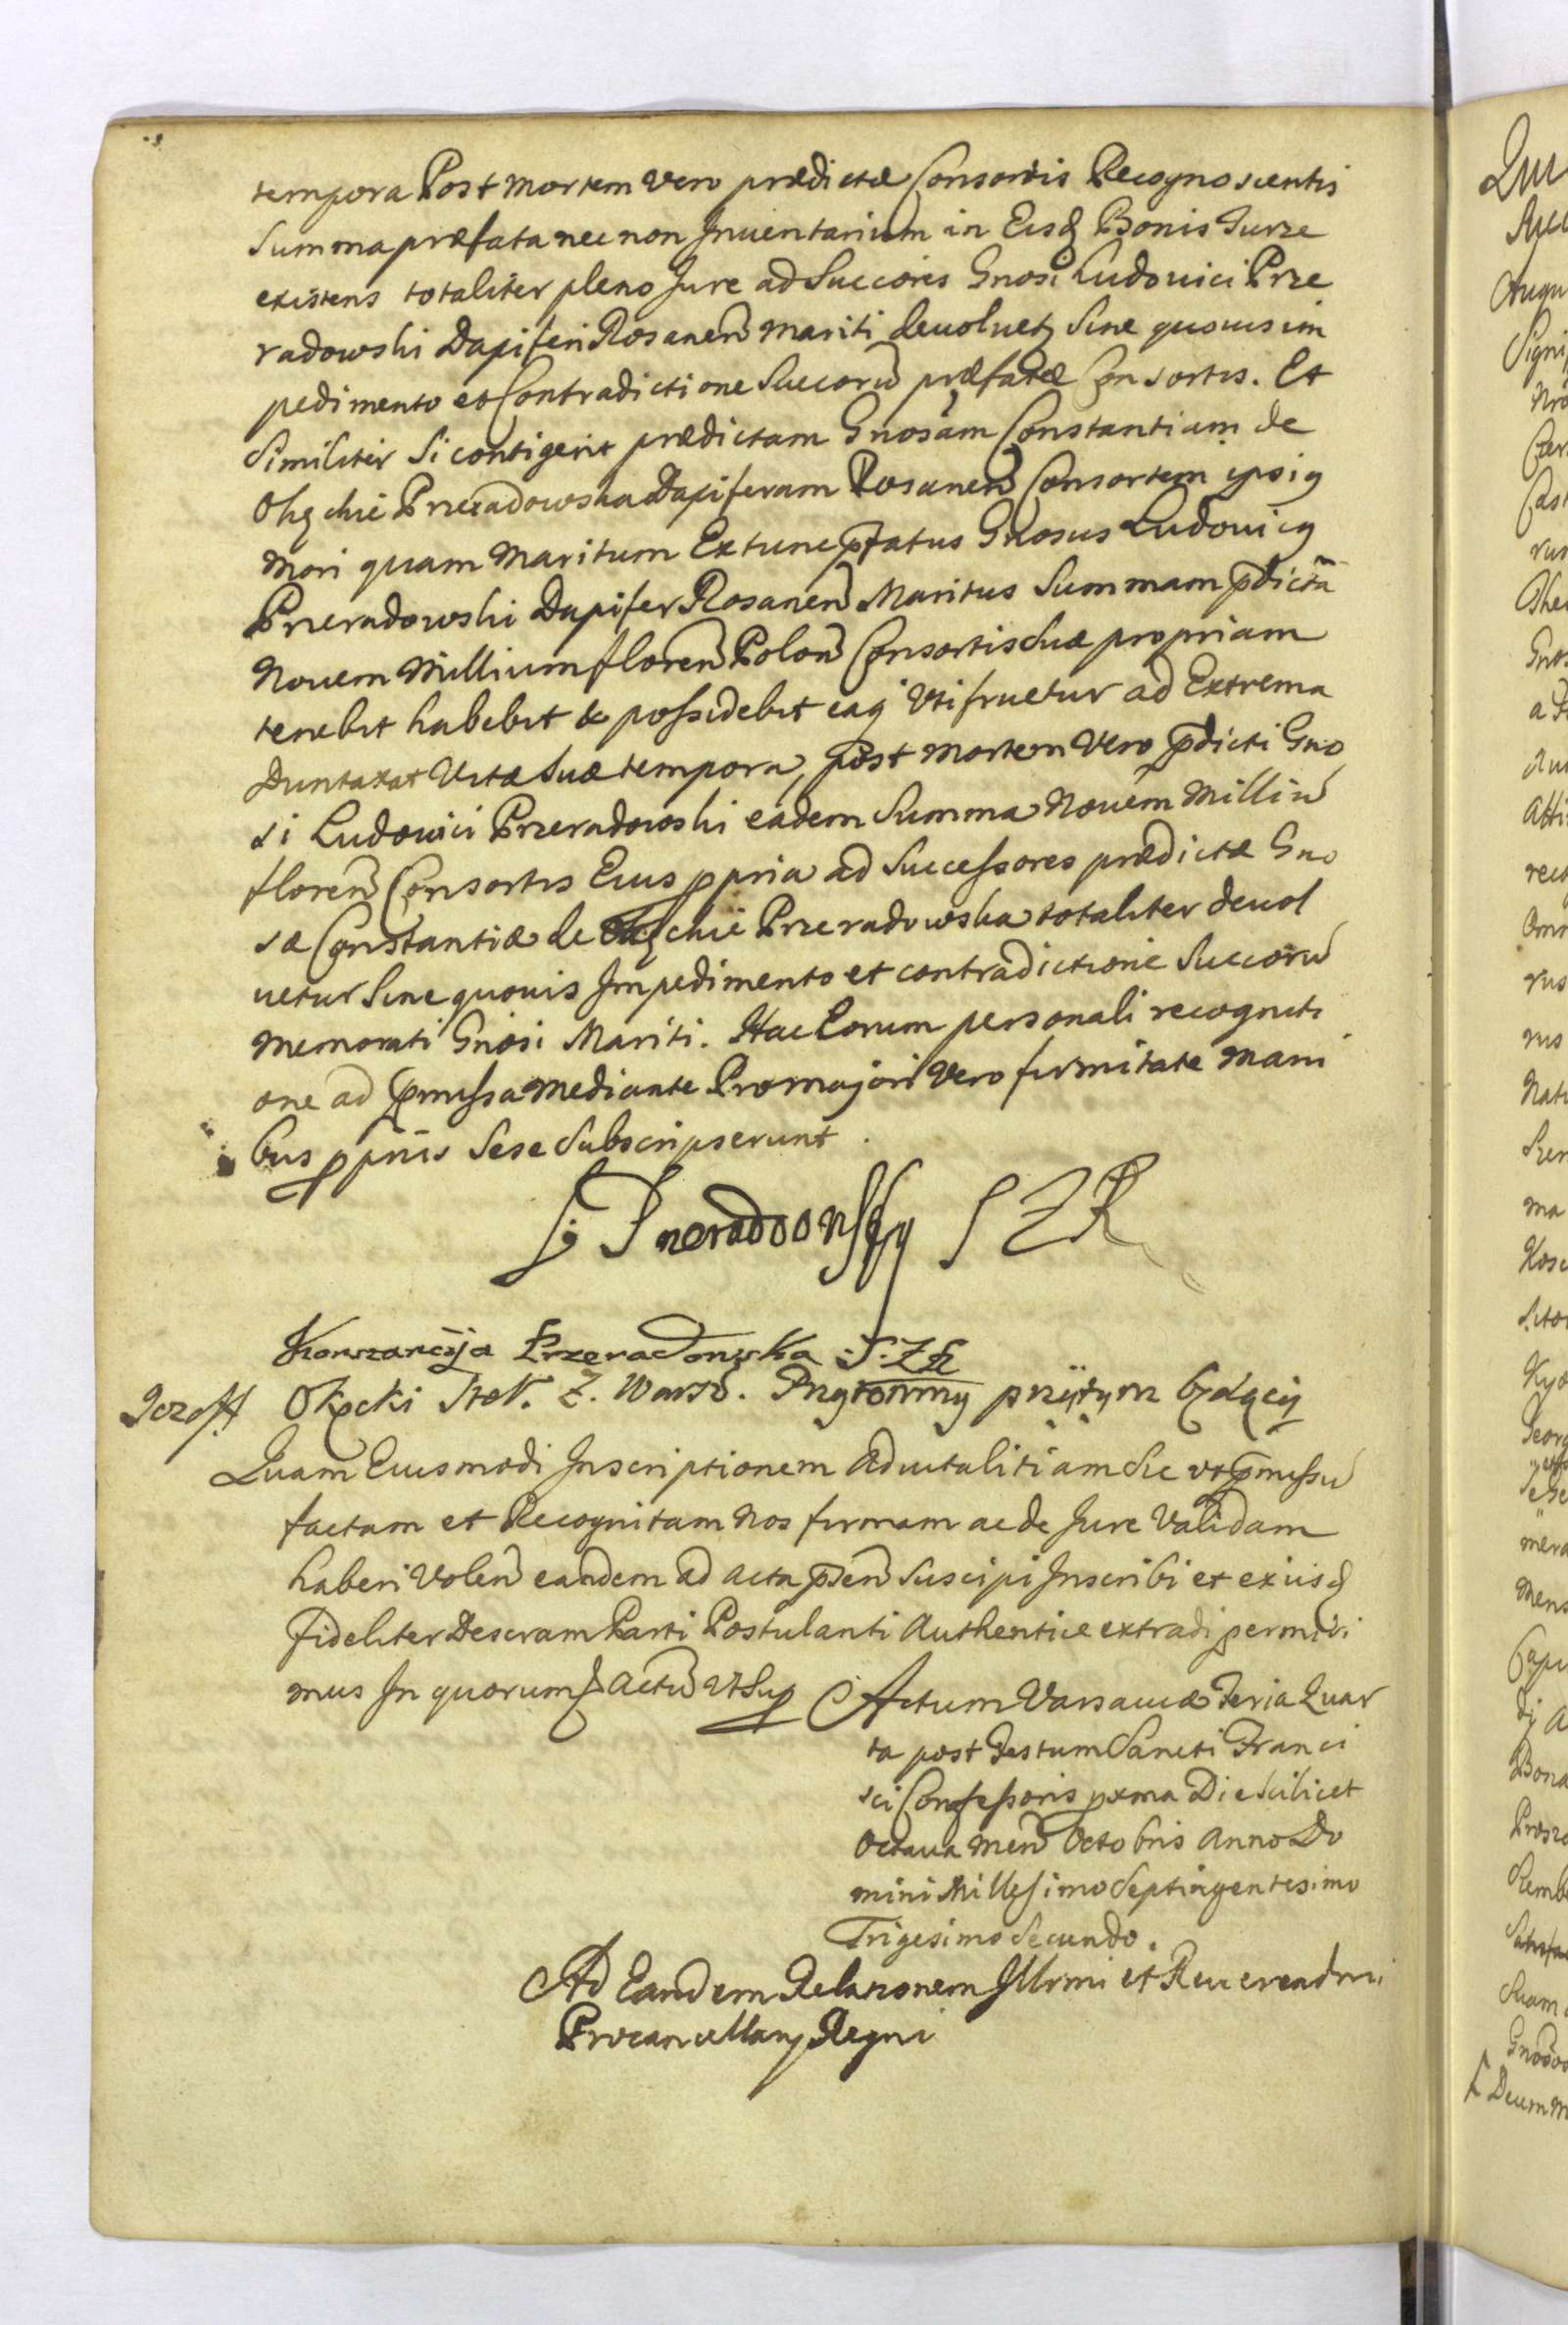 tempora Post mortem Vero prædictæ Consortis Recognoscentis
Summa præfata nec non Inuentarium in Eisq Bonis Jurze
existens totaliter pleno Jure ad Succōres Gnosi Ludouici Prze
radowski Dapiferi Rosanen Mariti deuoluetq Sine quouis im
pedimento et Contradictione Succorū præfatæ Consortis. Et
Similiter Si contigerit prædictam Gnosam Constantiam de
Okęckie Przeradowska Dapiferam Rosanen Consortem ipsig
Mori quam Maritum Extunc pfatus Gnosus Ludouicg
Przeradowski Dapifer Rosanen Maritus Summam pdictā
Nouem Millium floren Polon Consortis Suæ propriam
tenebit habebit & possidebit eaq Utifruetur ad Extrema
Duntaxat Vitæ Suæ tempora, post Mortem Vero pdicti Gno
si Ludouici Przeradowski eadem Summa Nouem Milliū
floren Consortis Eius ppria ad Successores prædictæ Gno
sæ Constantiæ de Okęckie Przeradowska totaliter deuol
uetur Sine quouis Impedimento et contradictione Succorū
Memorati Gnosi Mariti. Hac Eorum personali recogniti
one ad pmissa Mediante Pro majori Vero firmitate Mani
bus pprīis Sese Subscripserunt.
L Przeradowsky S Z R
Konstancija Przeradowska S. Z R
Jozeff Okęcki Stol. Z. Warsz. Przytomny przytym będący
Quam Eiusmodi Inscriptionem Aduitalitiam Sic vt pmissū
factam et Recognitam Nos firmam ac de Jure Validam
haberi Volen eandem ad Acta psen Suscipi Inscribi et ex iisq
fideliter Descram Parti Postulanti Authentice extradi permisi
mus In quorum Actū Ut Sup
Actum Varsauiæ Feria Quar
ta post Festum Sancti Franci
sci Confessoris pxma Die Scilicet
Octaua Men Octobris Anno Do
mini Millesimo Septingentesimo
Trigesimo Secundo.
Ad Eandem Relationem Illrmi et Reuerendmi
Procancellarij Regni